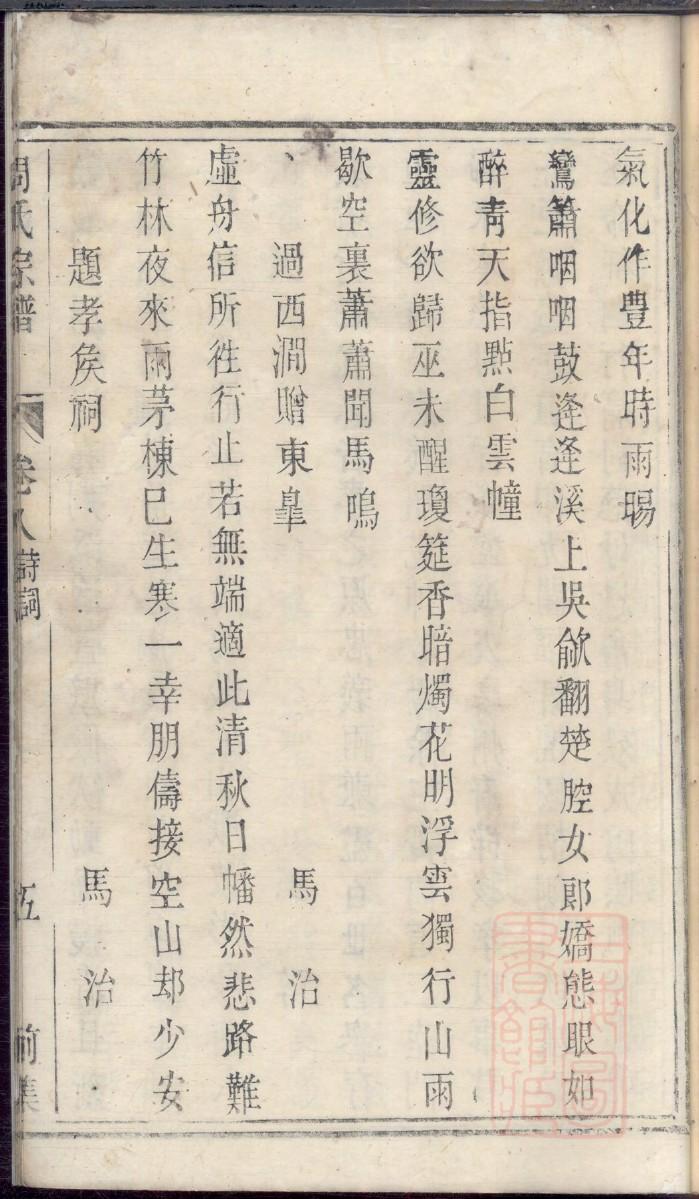 氣化作豊年時雨賜
鸞簫咽咽鼓逢逢溪上吳歈翻楚腔女郎嬌態眼如
醉青天指點白雲幢
靈修欲歸巫未醒瓊筵香暗燭花明浮雲獨行山雨
歇空裏蕭蕭聞馬鳴
過西澗贈東皐 馬治
虛舟信所徃行止若無端適此清秋日幡然悲路難
竹林夜來雨茅棟巳生寒一幸朋儔接空山却少安
題孝矦祠 馬治
周氏宗譜 卷八 詩詞 五 前集